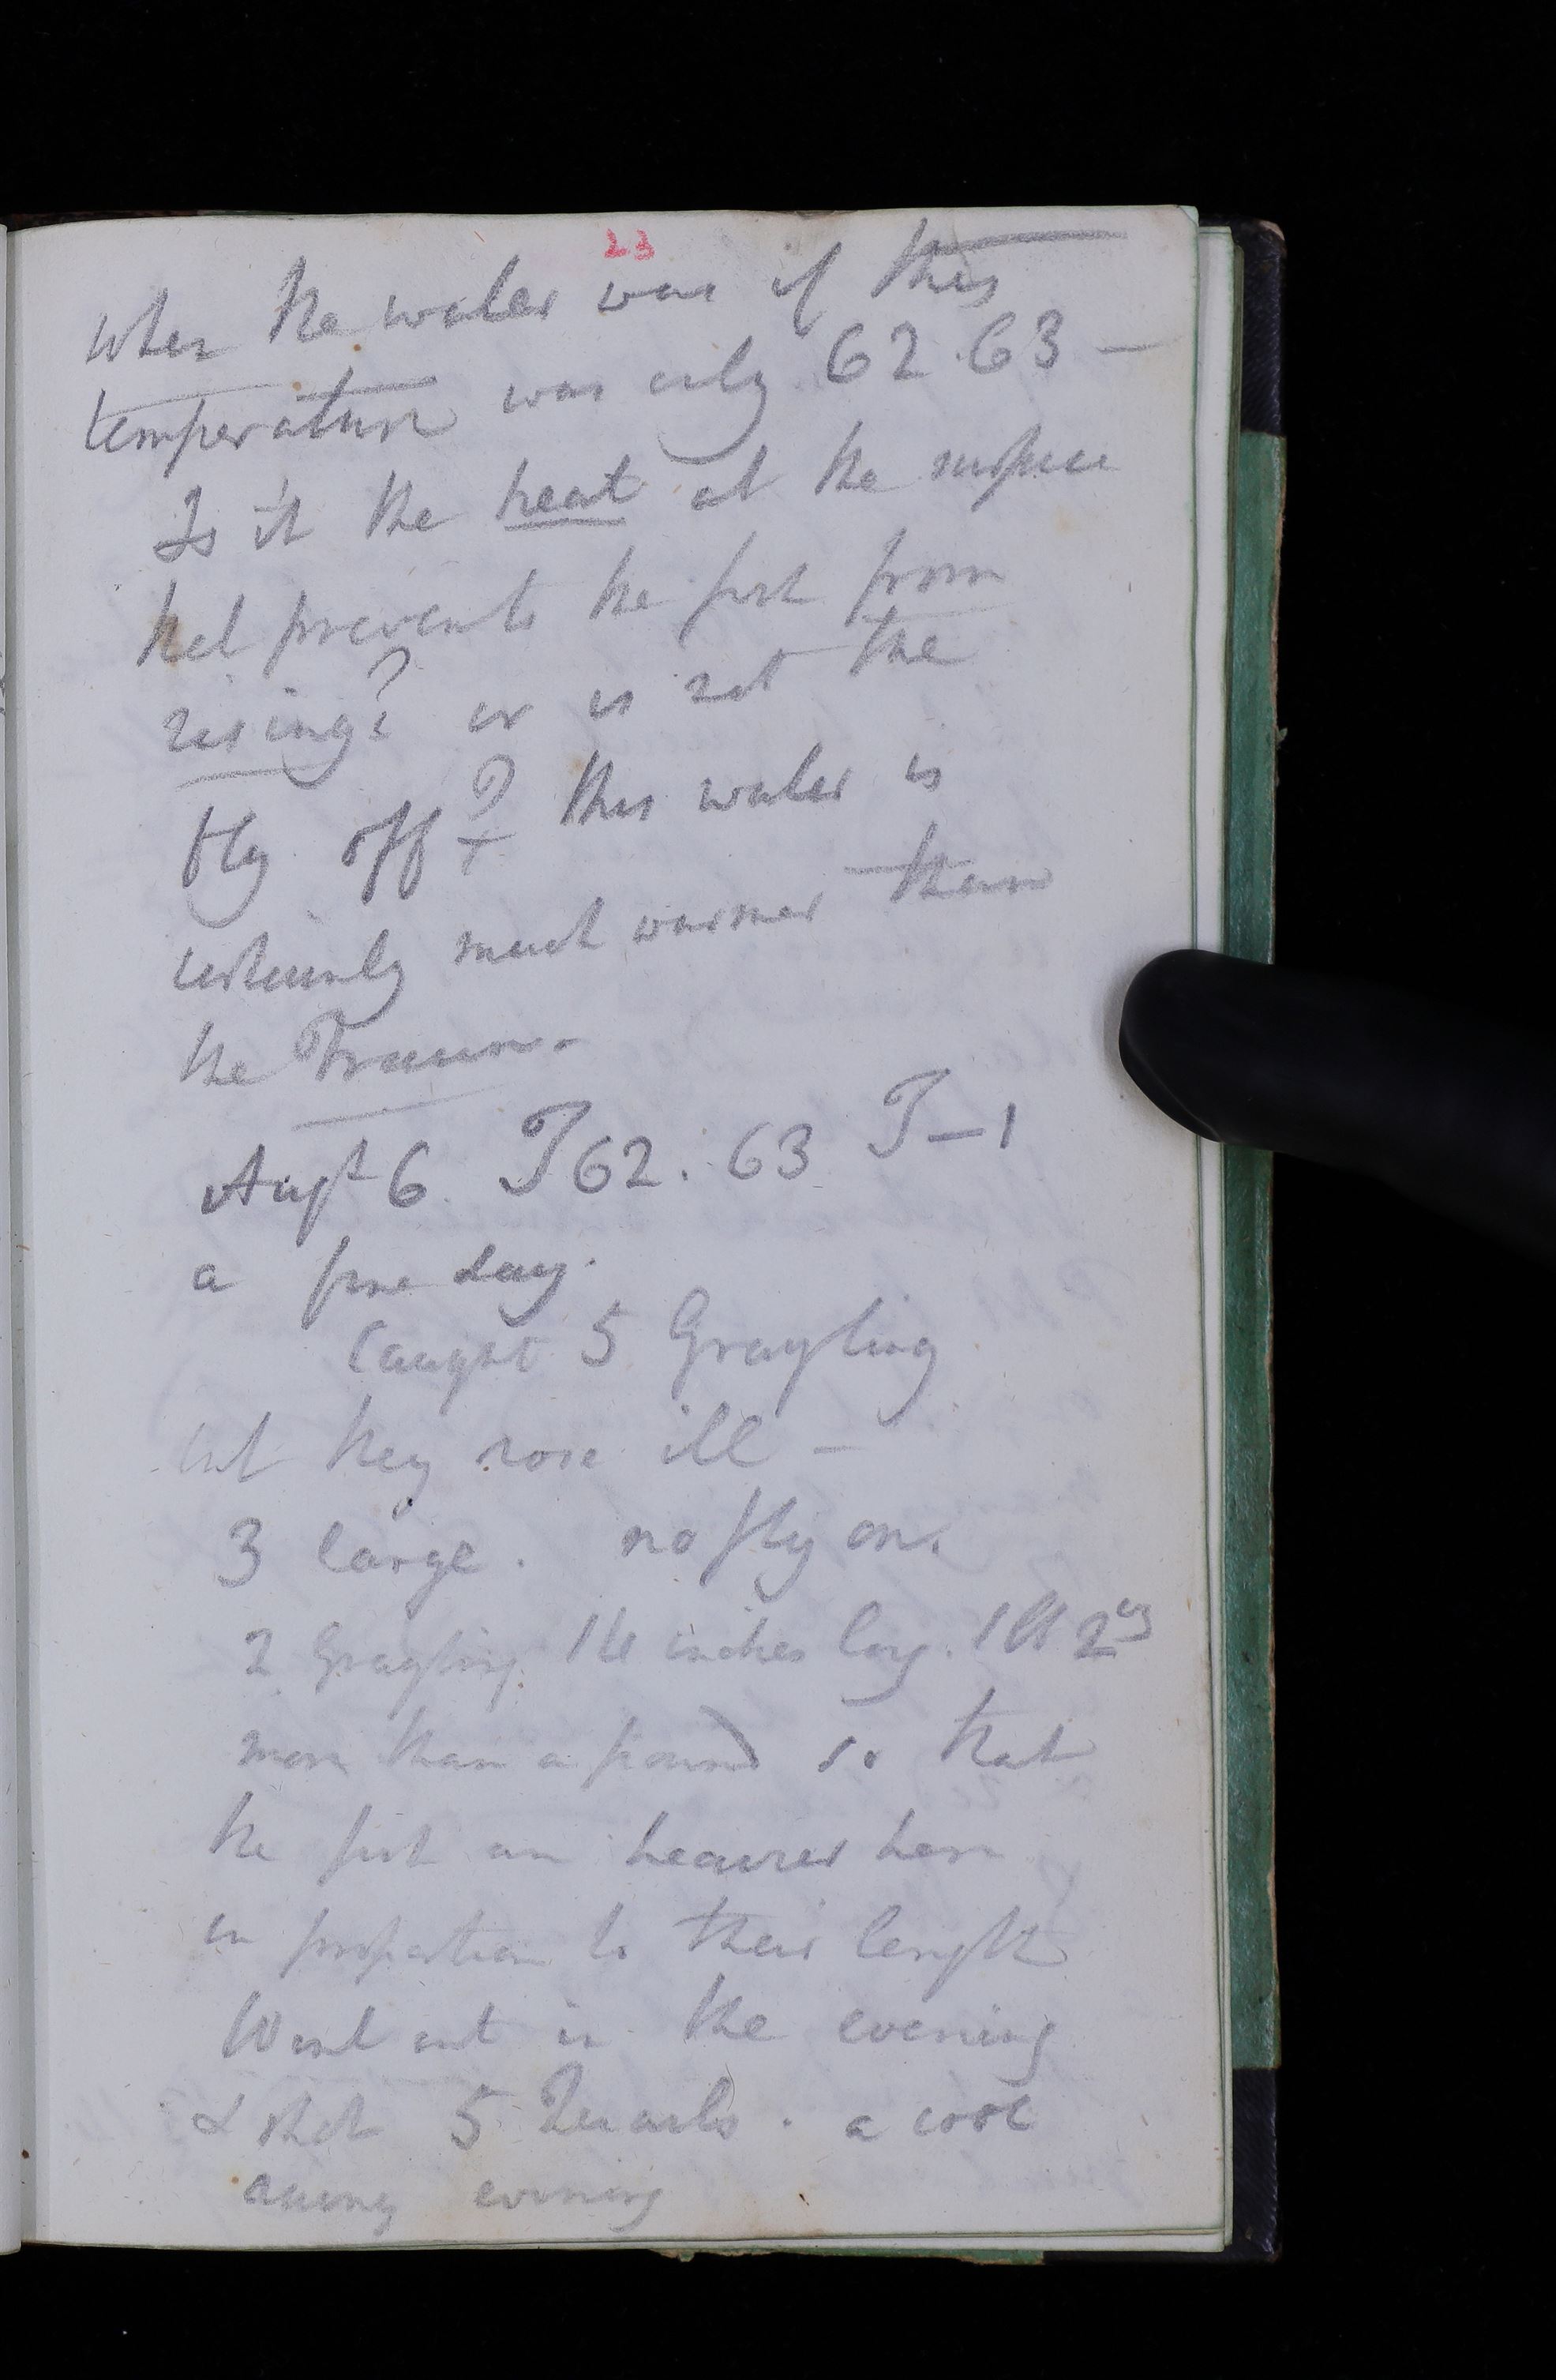 23
when the water was of this
temperature was only 62. 63 –
Is it the heat at the surface
that prevents the fish from
rising? or is not the
fly off? this water is
certainly much warmer than
the Traun.
Augt 6. T 62. 63 T – 1
a fine day.
Caught 5 Grayling
but they rose ill –
3 large. no fly on.
2 Grayling 14 inches long. 1 lb 2 oz
more than a pound so that
the fish are heavier here
in proportion to their length
Went out in the evening
& shot 5 Quails. a cool
evening